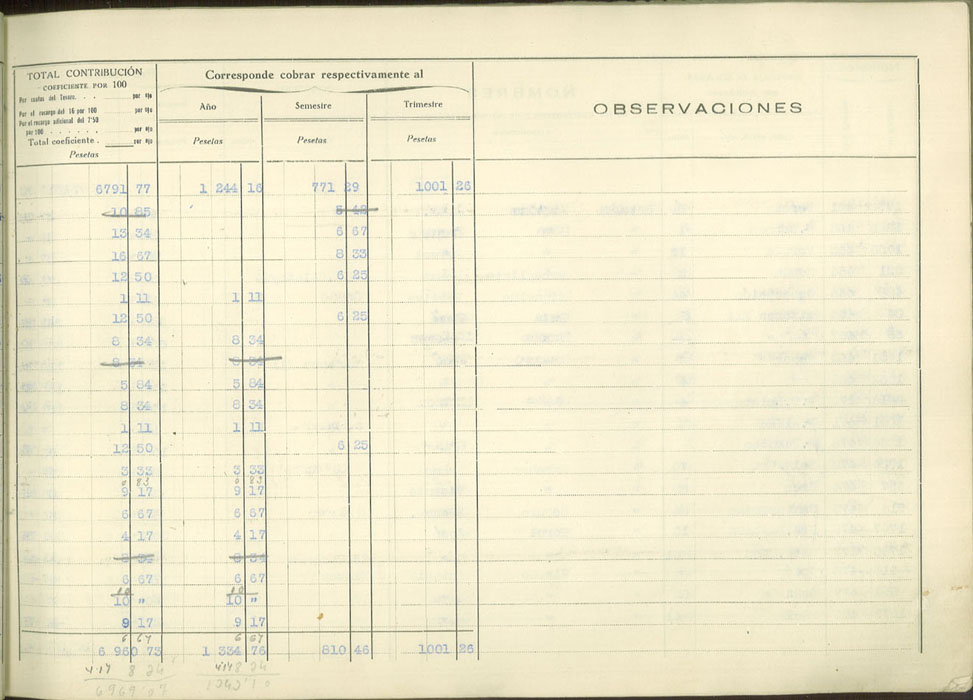 TOTAL CONTRIBUCIÓN
COEFICIENTE POR 100
Por cuotas del Tesoro. . . por 0/0
Por el recargo del 16 por 100 por 0/0
Por el recargo adicional del 7'50
por 100 . . . . . . por 0/0
Total coeficiente . por 0/0
Pesetas
Corresponde cobrar respectivamente al
Año Semestre Trimestre
Pesetas Pesetas Pesetas
OBSERVACIONES
6791 77 1 244 16 771 29 1001 26
10 85 5 42
13 34 6 67
16 67 8 33
12 50 6 25
1 11 1 11
12 50 6 25
8 34 8 34
8 34 8 34
5 84 5 84
8 34 8 34
1 11 1 11
12 50 6 25
3 33 3 33
0 83 0 83
9 17 9 17
6 67 6 67
4 17 4 17
8 34 8 34
6 67 6 67
10 10
10 " 10 "
9 17 9 17
6 67 6 67
6 960 73 1 334 76 810 46 1001 26